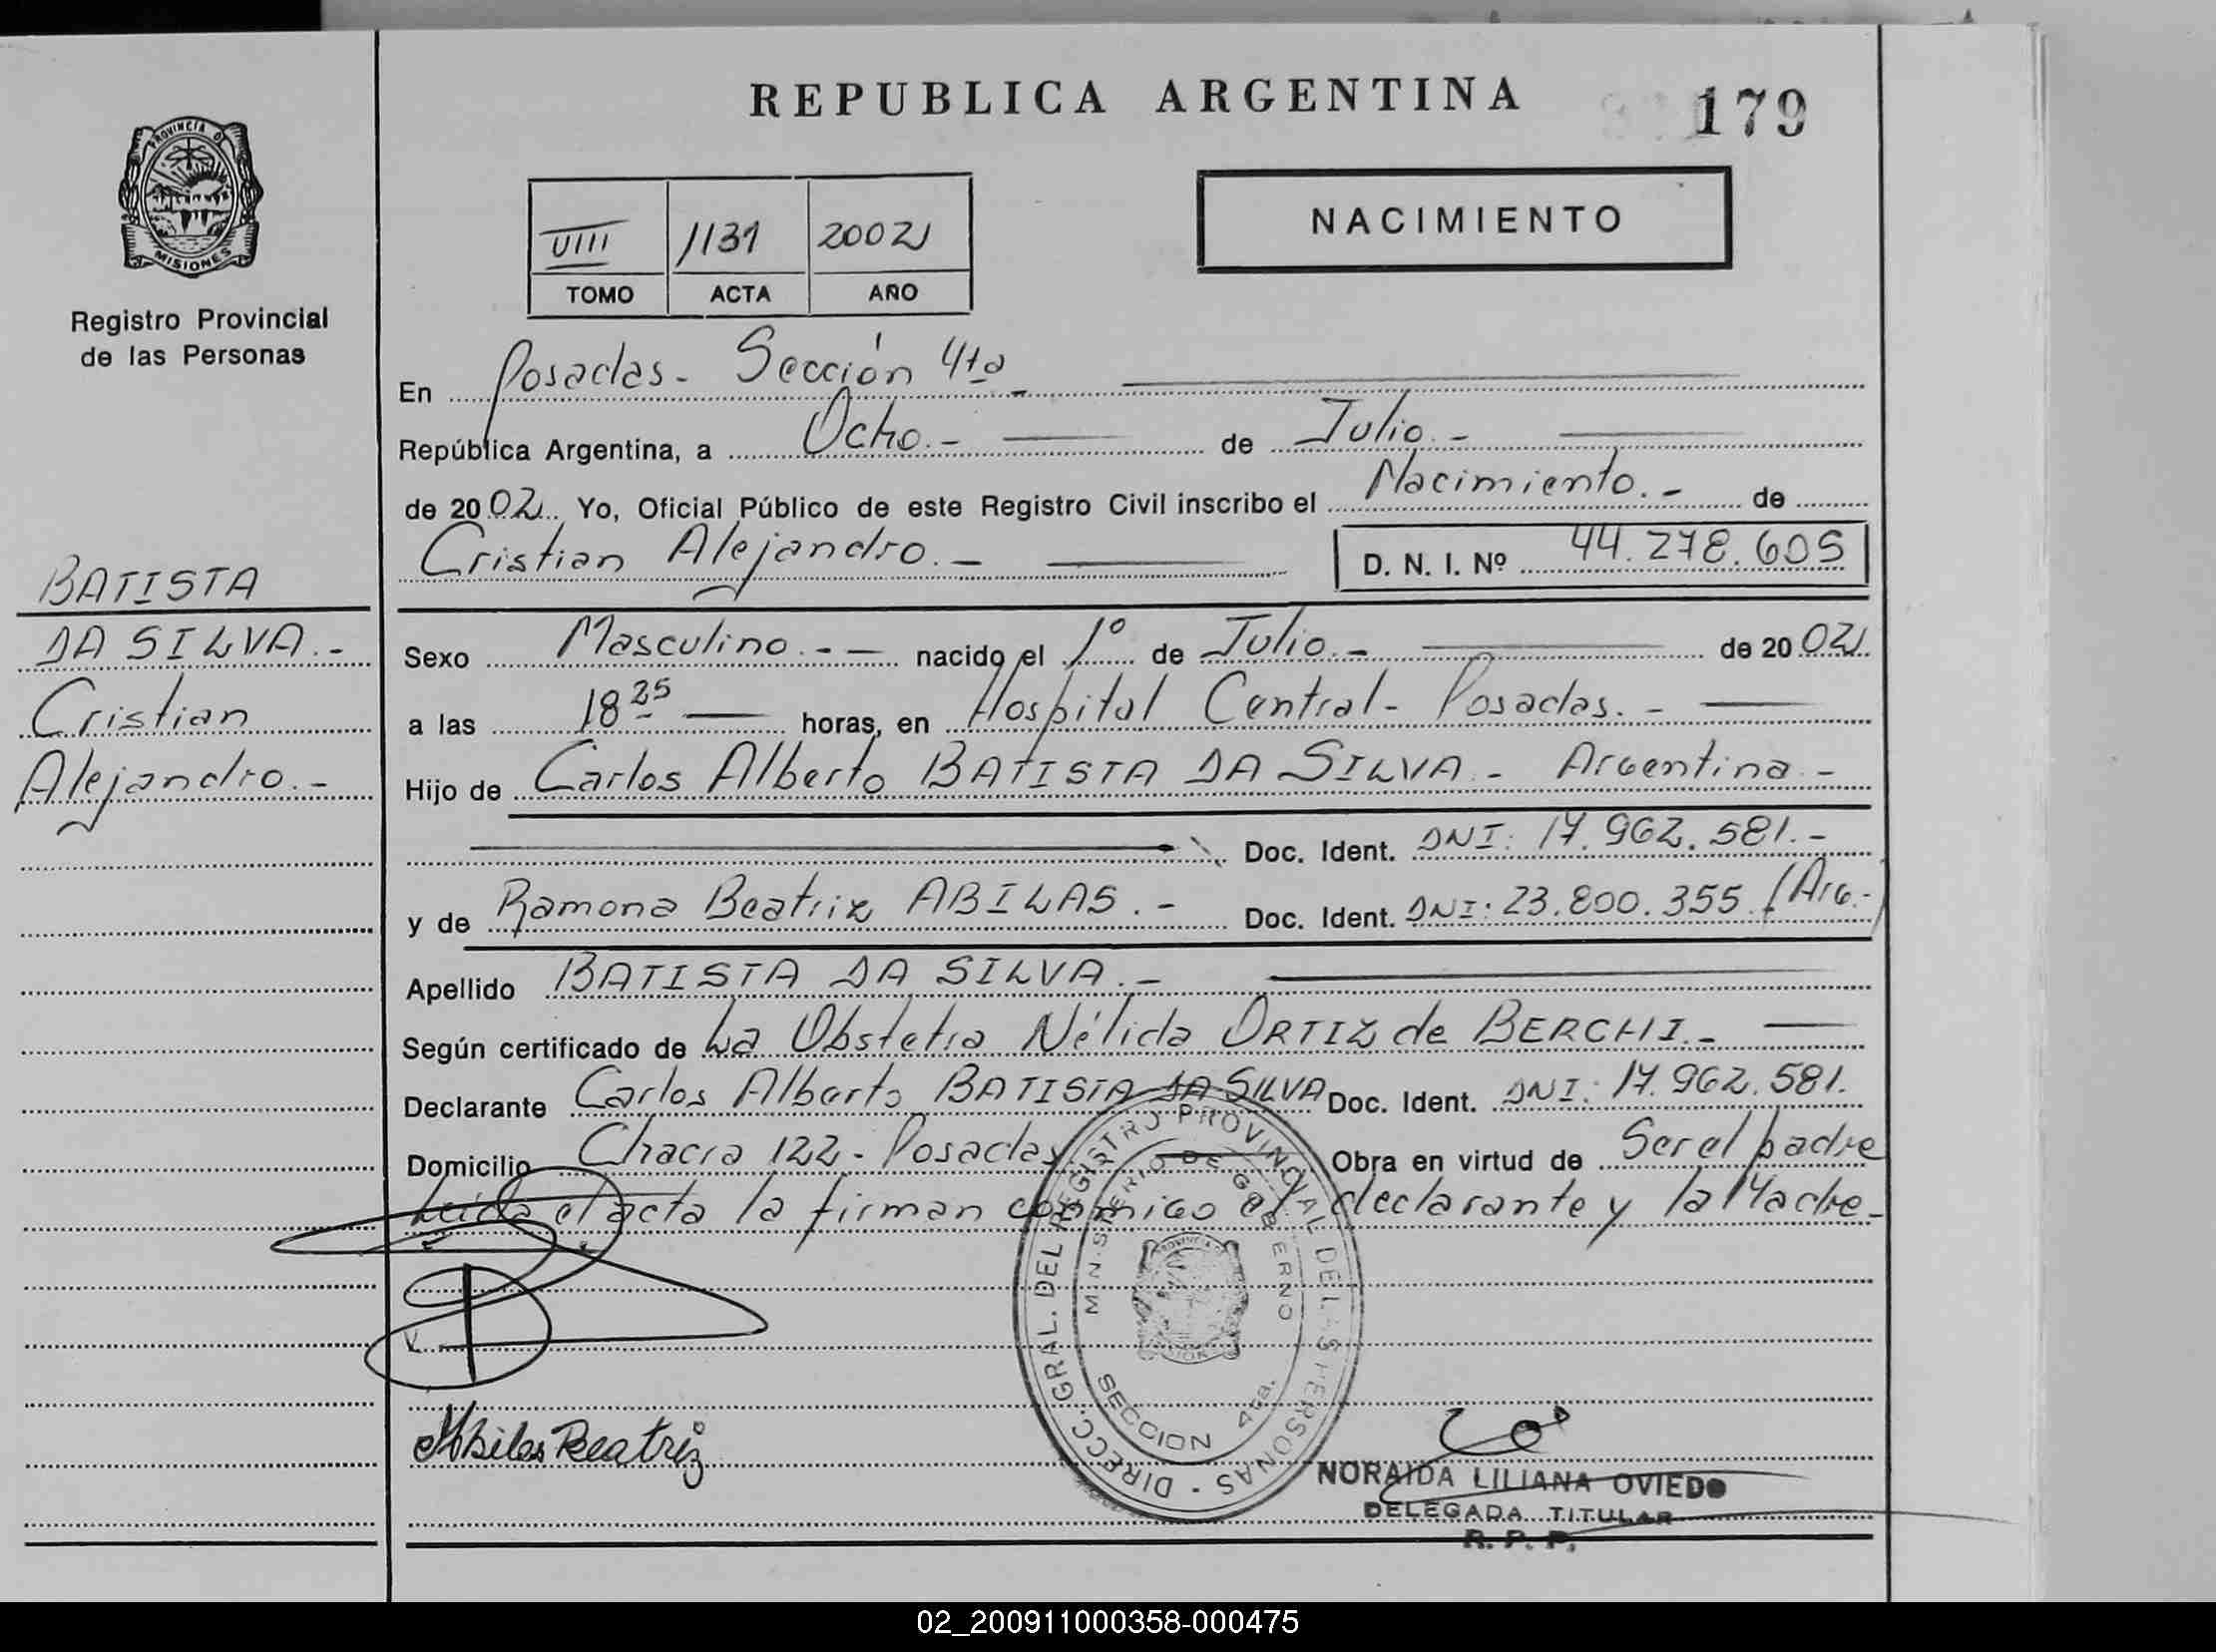 REPUBLICA ARGENTINA
179
PROVINCIA DE
MISIONES
Registro Provincial
de las Personas
VIII 1131 2002
TOMO ACTA AÑO
NACIMIENTO
En Posadas.- Sección 4ta.-
República Argentina, a Ocho.- de Julio.-
de 2002 Yo, Oficial Público de este Registro Civil inscribo el Nacimiento.- de
Cristian Alejandro.- D. N. I. Nº 44.278.605
BATISTA
DA SILVA.-
Cristian
Alejandro.-
Sexo Masculino.- nacido el 1º de Julio.- de 2002
a las 18 25 horas, en Hospital Central- Posadas.-
Hijo de Carlos Alberto BATISTA DA SILVA.- Argentina.-
Doc. Ident. DNI: 17.962.581.-
y de Ramona Beatriz ABILAS.- Doc. Ident. DNI: 23.800.355 (Arg.-)
Apellido BATISTA DA SILVA.-
Según certificado de La Obstetra Nélida ORTIZ de BERCHI.-
Declarante Carlos Alberto BATISTA DA SILVA Doc. Ident. DNI: 17.962.581.
Domicilio Chacra 122- Posadas Obra en virtud de Ser el padre
Leída el acta la firman conmigo el declarante y la Madre.-
DIRECC. GRAL. DEL REGISTRO PROVINCIAL DE LAS PERSONAS
MINISTERIO DE GOBIERNO
SECCION 4ta.
Beatriz
NORAIDA LILIANA OVIEDO
DELEGADA TITULAR
R. P. P.
02_200911000358-000475